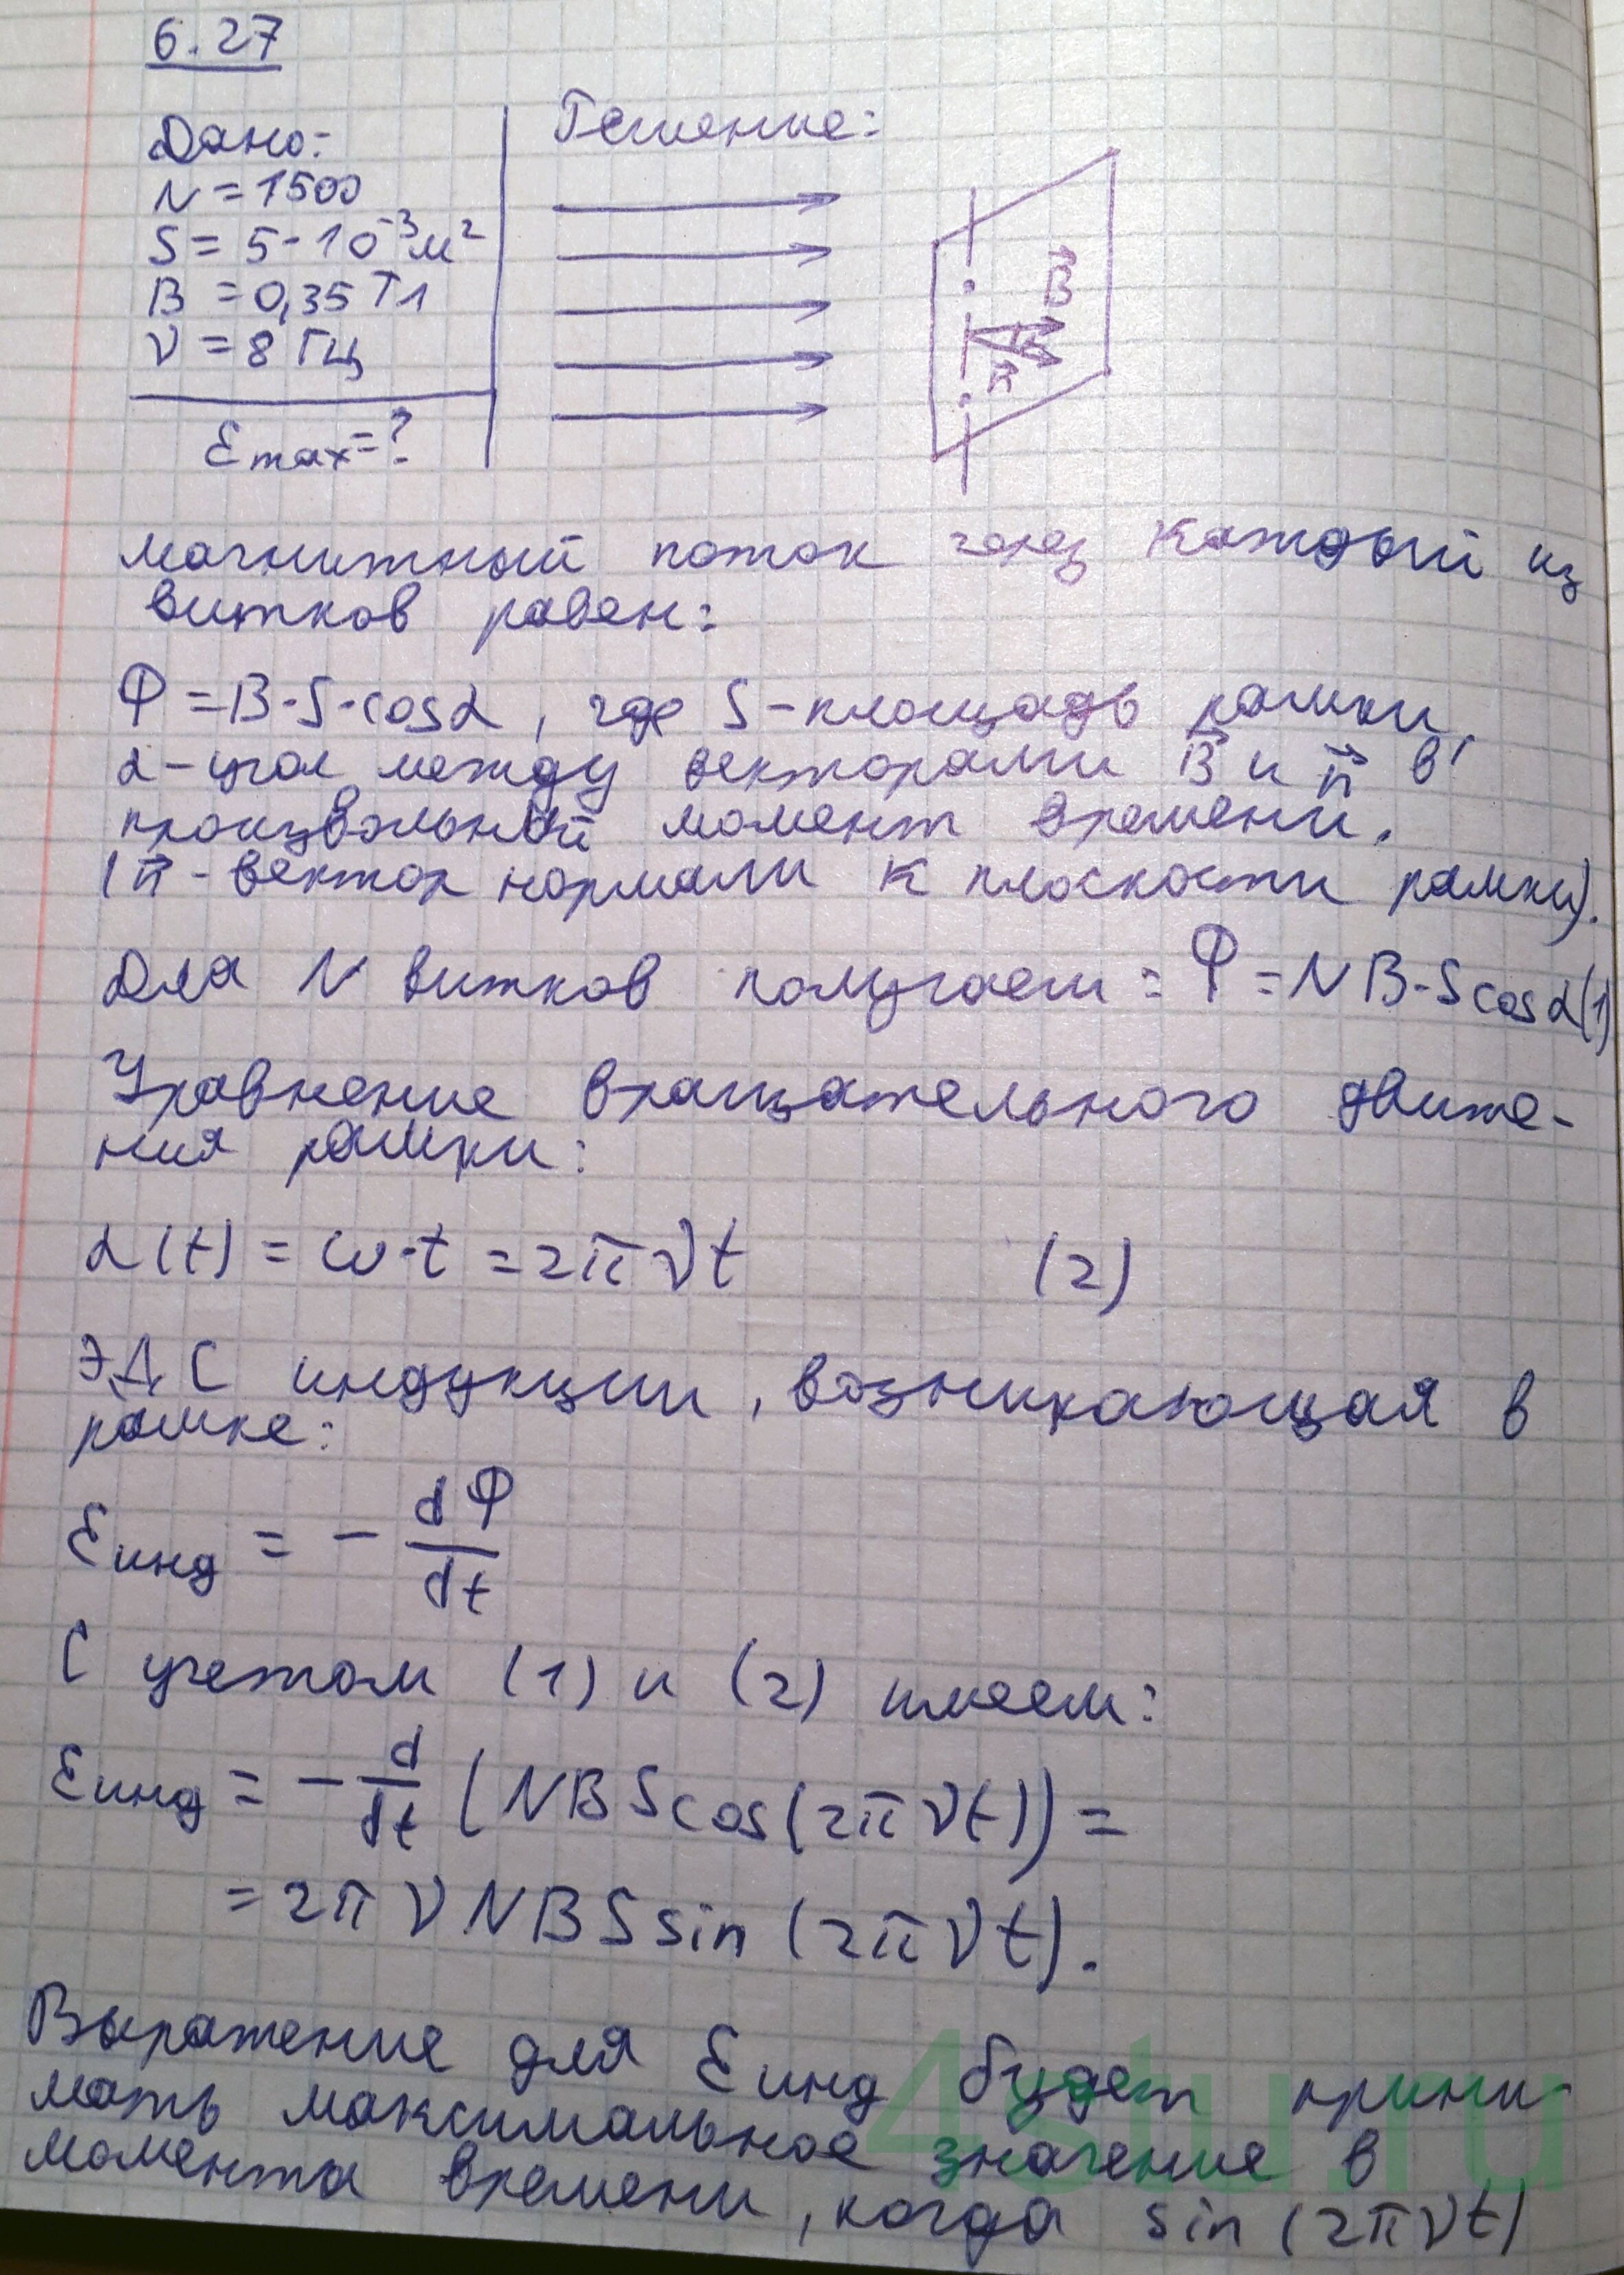 6.27
Дано:
N = 1500
S = 5·10⁻³ м²
B = 0,35 Тл
ν = 8 Гц
Ɛmax = ?
Решение:
B⃗
n⃗
магнитный поток через каждый из
витков равен:
Ф = B·S·cosα, где S - площадь рамки,
α - угол между векторами B⃗ и n⃗ в
произвольный момент времени.
(n⃗ - вектор нормали к плоскости рамки).
Для N витков получаем: Ф = NB·S cosα (1)
Уравнение вращательного движе-
ния рамки:
α(t) = ω·t = 2πνt (2)
ЭДС индукции, возникающая в
рамке:
Ɛинд = - dФ/dt
С учетом (1) и (2) имеем:
Ɛинд = - d/dt (NBS cos(2πνt)) =
= 2πνNBS sin(2πνt).
Выражение для Ɛинд будет прини-
мать максимальное значение в
момента времени, когда sin(2πνt)
4stu.ru